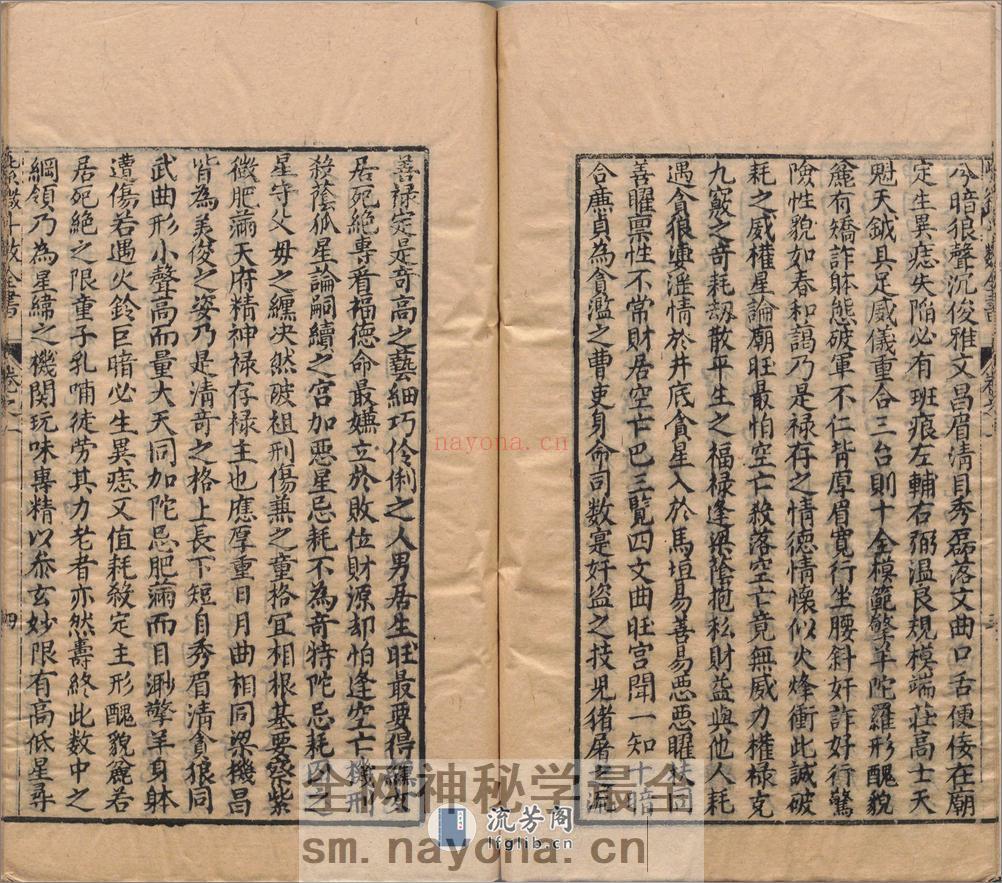 兮暗狼聲沉俊雅文昌眉清目秀磊落文曲口舌便倿在廟
定生異痣失陷必有班痕左輔右弼温良規模端莊高士天
魁天鉞具足威儀重合三台則十全模範擎羊陀羅形醜貌
麄有矯詐躰態破軍不仁背厚眉寬行坐腰斜奸詐好行驚
險性貌如春和藹乃是禄存之情德情懷似火烽衝此誠破
耗之威權星論廟旺最怕空亡殺落空亡竟無威力權禄克
九竅之奇耗刼散平生之福禄逢梁蔭抱私財益與他人耗
遇貪狼逞淫情於井底貪星入於馬垣易善易惡惡曜扶同
善曜禀性不常財居空亡巴三覽四文曲旺宮聞一知十暗
合廉貞為貪濫之曹吏身命司数寔奸盗之技児猪屠之流
善禄定是竒高之藝細巧伶俐之人男居生旺最要得
居死絶專看福德命最嬚立於敗位財源却怕逢空亡機刑
殺蔭孤星論嗣續之宮加惡星忌耗不為奇特陀忌耗囚之
星守父母之纏决然破祖刑傷兼之童格宜相根基要察紫
微肥滿天府精神禄存禄主也應厚重日月曲相同梁機昌
皆為美俊之姿乃是清竒之格上長下短目秀眉清貪狼同
武曲形小聲高而量大天同加陀忌肥滿而目渺擎羊身躰
遭傷若遇火鈴巨暗必生異痣又值耗殺定主形醜貌麄若
居死絶之限童子乳哺徒劳其力老者亦然壽終此数中之
綱領乃為星緯之機関玩味專精以叅玄妙限有高低星尋
四
nayona.cn
全网神秘学最全
流芳阁
lfglib.cn
sm.nayona.cn